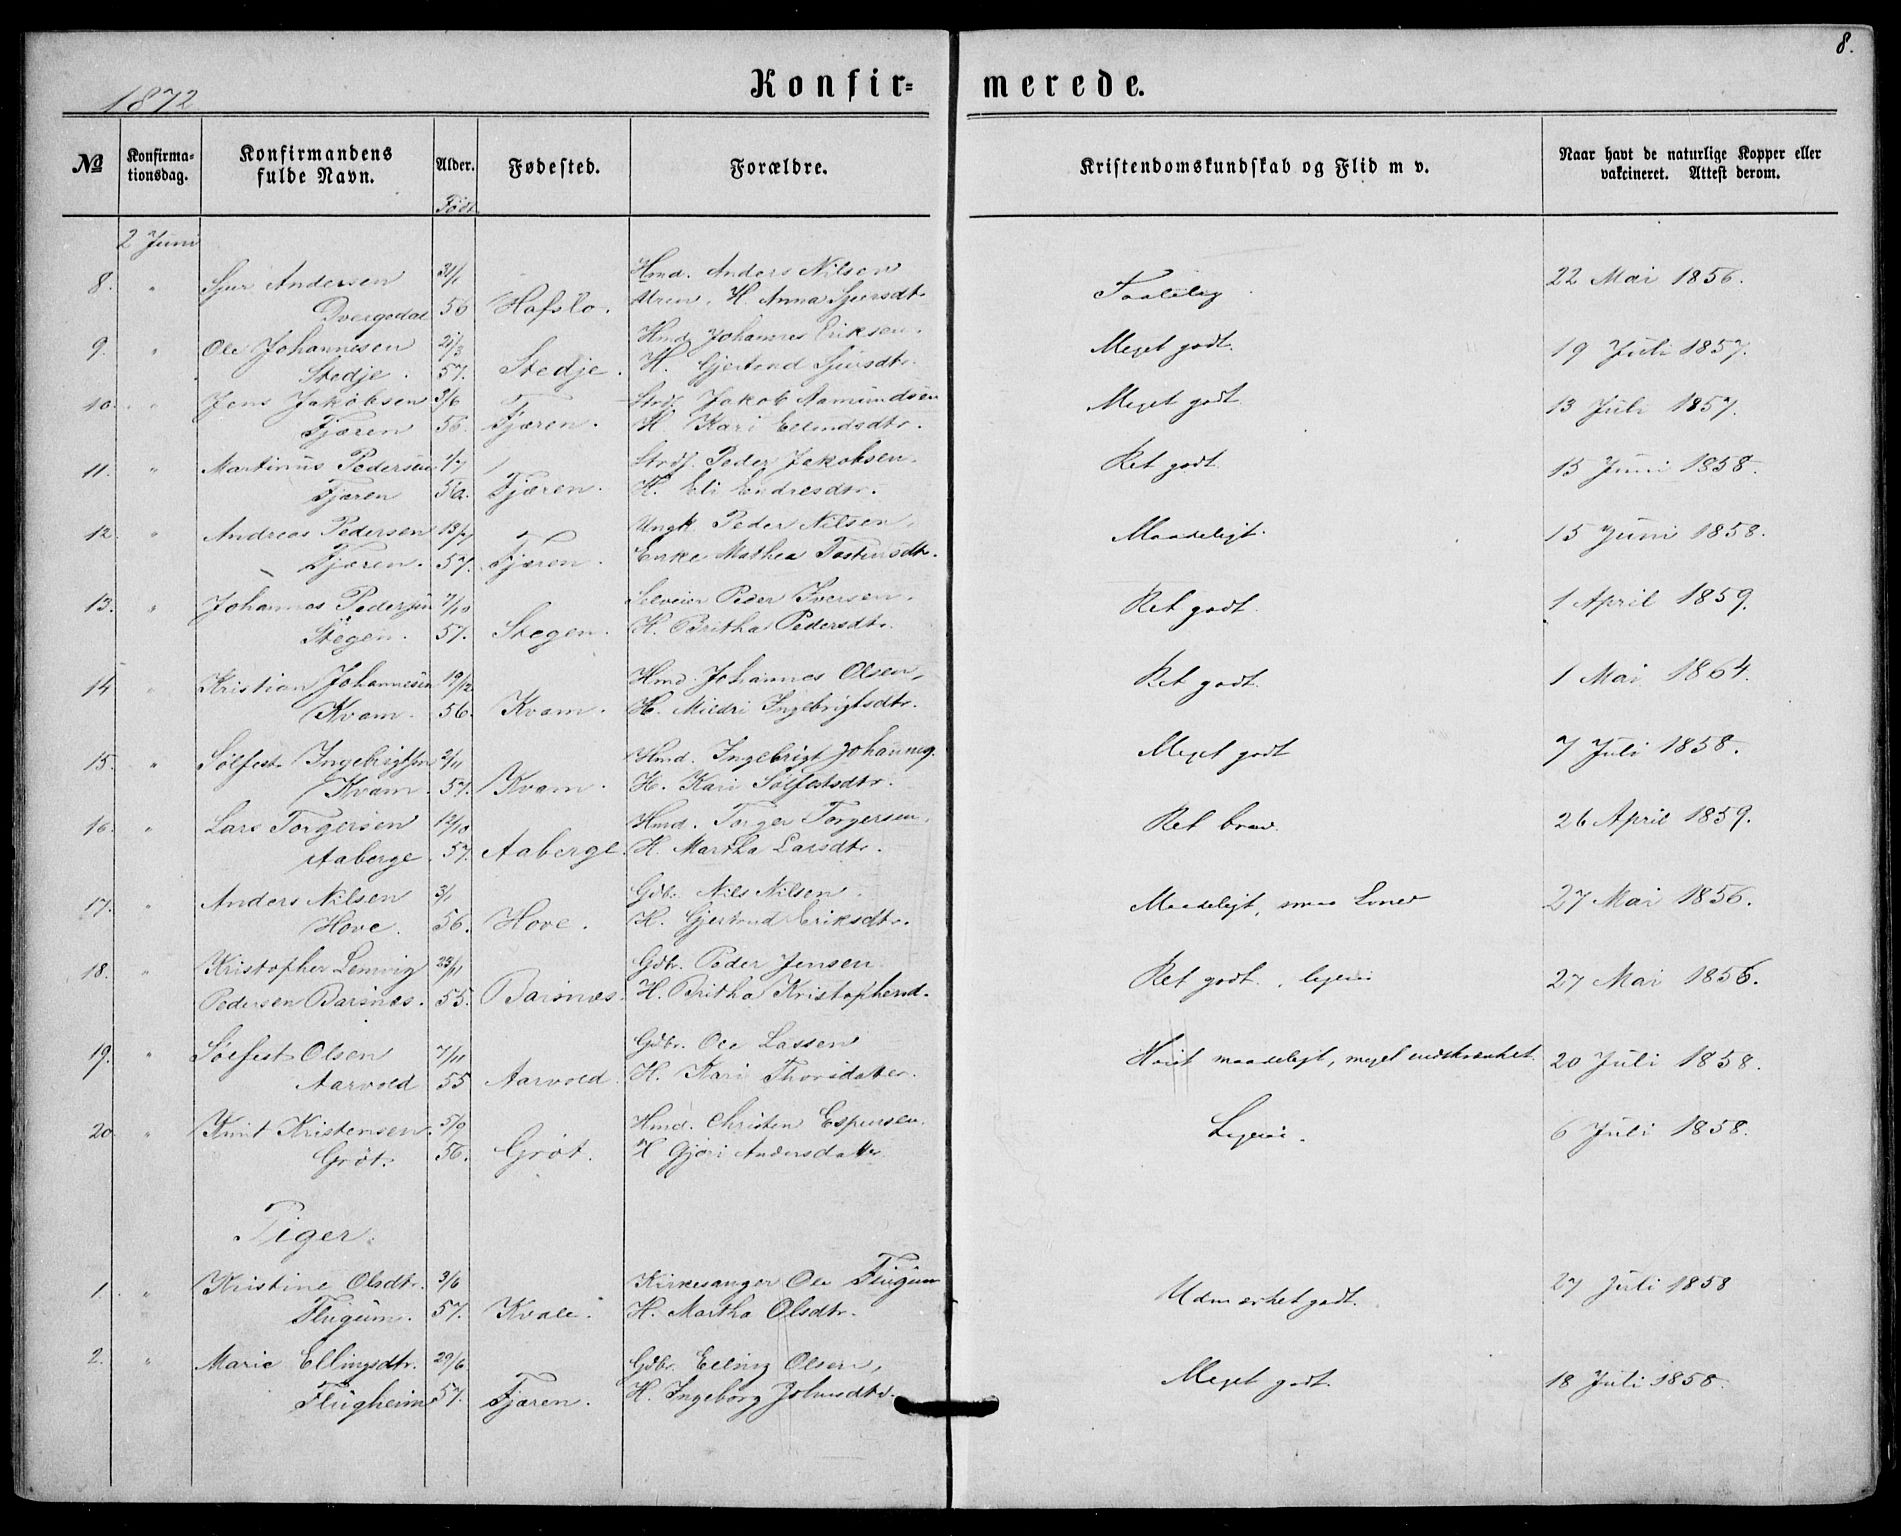 8.
1872
Konfir= merede.
No Konfirmationsdag. Konfirmandens fulde Navn. Alder. Fødested. Forældre. Kristendomskundskab og Flid m v. Naar havt de naturlige Kopper eller vakcineret. Attest derom.
Født
2 Juni
8. " Sjur Andersen 31/1 Hmd. Anders Nilsen Taalelig. 22 Mai 1856.
Dvergedal 56 Hafslo. Uren, H. Anna Sjursdtr.
9. " Ole Johannesen 21/3 Hmd. Johannes Eriksen. Meget godt. 19 Juli 1857.
Stedje. 57. Stedje. H. Gjertrud Sjursdtr.
10. " Jens Jakobsen 3/6 Strds. Jakob Aamundsen Meget godt. 13 Juli 1857.
Fjæren 56. Fjæren. H. Kari Erlendsdtr.
11. " Martinus Pedersen 1/7 Strds. Peder Jakobsen. Ret godt. 15 Juni 1858.
Fjæren Fjæren. H. Eli Endresdtr.
12. " Andreas Pedersen 13/7 Ungk. Peder Nilsen, Maadeligt. 15 Juni 1858.
Fjæren. 57. Fjæren. Enke Mathea Tostensdtr.
13. " Johannes Pedersen 7/10 Selveier Peder Iversen. Ret godt. 1 April 1859.
Stegen. 57. Stegen. H. Britha Pedersdtr.
14 " Kristian Johannesen 19/12 Hmd. Johannes Olsen, Ret godt. 1 Mai 1864.
Kvam. 56. Kvam. H. Mildri Ingebrigtsdtr.
15. " Sølfest Ingebrigtsen 2/11 Hmd. Ingebrigt Johannes. Meget godt 7 Juli 1858.
Kvam. 57. Kvam. H. Kari Sølfestsdtr.
16. " Lars Torgersen 12/10 Hmd. Torger Torgersen, Ret brav. 26 April 1859.
Aaberge. 57. Aaberge. H. Martha Larsdtr.
17. " Anders Nilsen 3/1 Gdbr. Nils Nilsen. Maadeligt, smaa Evner 27 Mai 1856.
Hove. 56. Hove. H. Gjertrud Eriksdtr.
18. " Kristopher Lemvig 23/11 Gdbr. Peder Jensen Ret godt., ligesaa 27 Mai 1856.
Pedersen Barsnæs. 55. Barsnæs. H. Britha Kristophersd.
19. " Sølfest Olsen 7/11 Gdbr. Ole Lassen Høist maadeligt, meget indskrænket 20 Juli 1858.
Aarvold 55 Aarvold. H. Kari Thorsdatter.
20 " Knut Kristensen. 5/9 Hmd. Christen Espersen. Ligesaa. 6 Juli 1858.
Grøt. 56. Grøt. H Gjøri Andersdatter
Piger.
1. " Kristine Olsdtr. 3/6 Kirkesanger Ole Flugum Udmærket godt. 27 Juli 1858
Flugum. 57. Kvale. H. Martha Olsdtr.
2. " Marie Ellingsdtr. 29/6 Gdbr. Elling Olsen, Meget godt. 18 Juli 1858.
Flugheim 57. Fjæren. H. Ingeborg Johnsdtr.